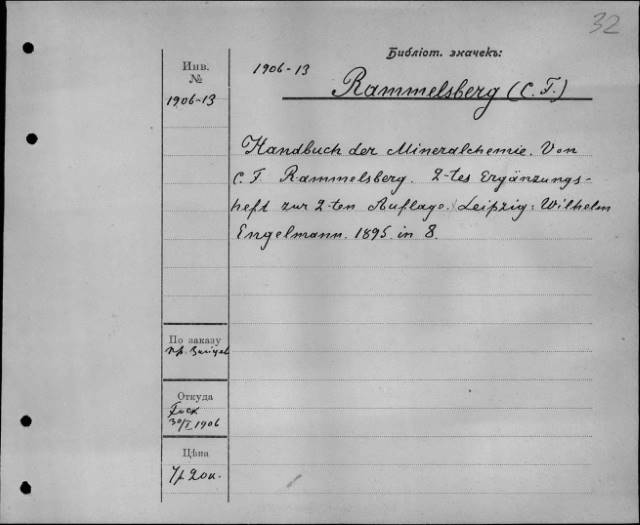 32
Библіот. значекъ:
Инв.
№
1906-13
1906-13
Rammelsberg (C. F.)
Handbuch der Mineralchemie. Von
C. F. Rammelsberg. 2-tes Ergänzungs-
heft zur 2-ten Auflage. Leipzig: Wilhelm
Engelmann. 1895. in 8.
По заказу
Откуда
Fock
30/I 1906
Цѣна
7р 20к.